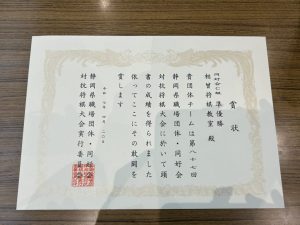 賞状
同好会C級 準優勝
相習将棋教室 殿
貴団体チームは第八十七回
静岡県職場団体・同好会
対抗将棋大会に於いて頭
書の成績を得られました
依ってここにその敢闘を
賞します
静岡県職場団体・同好会
対抗将棋大会実行委員会